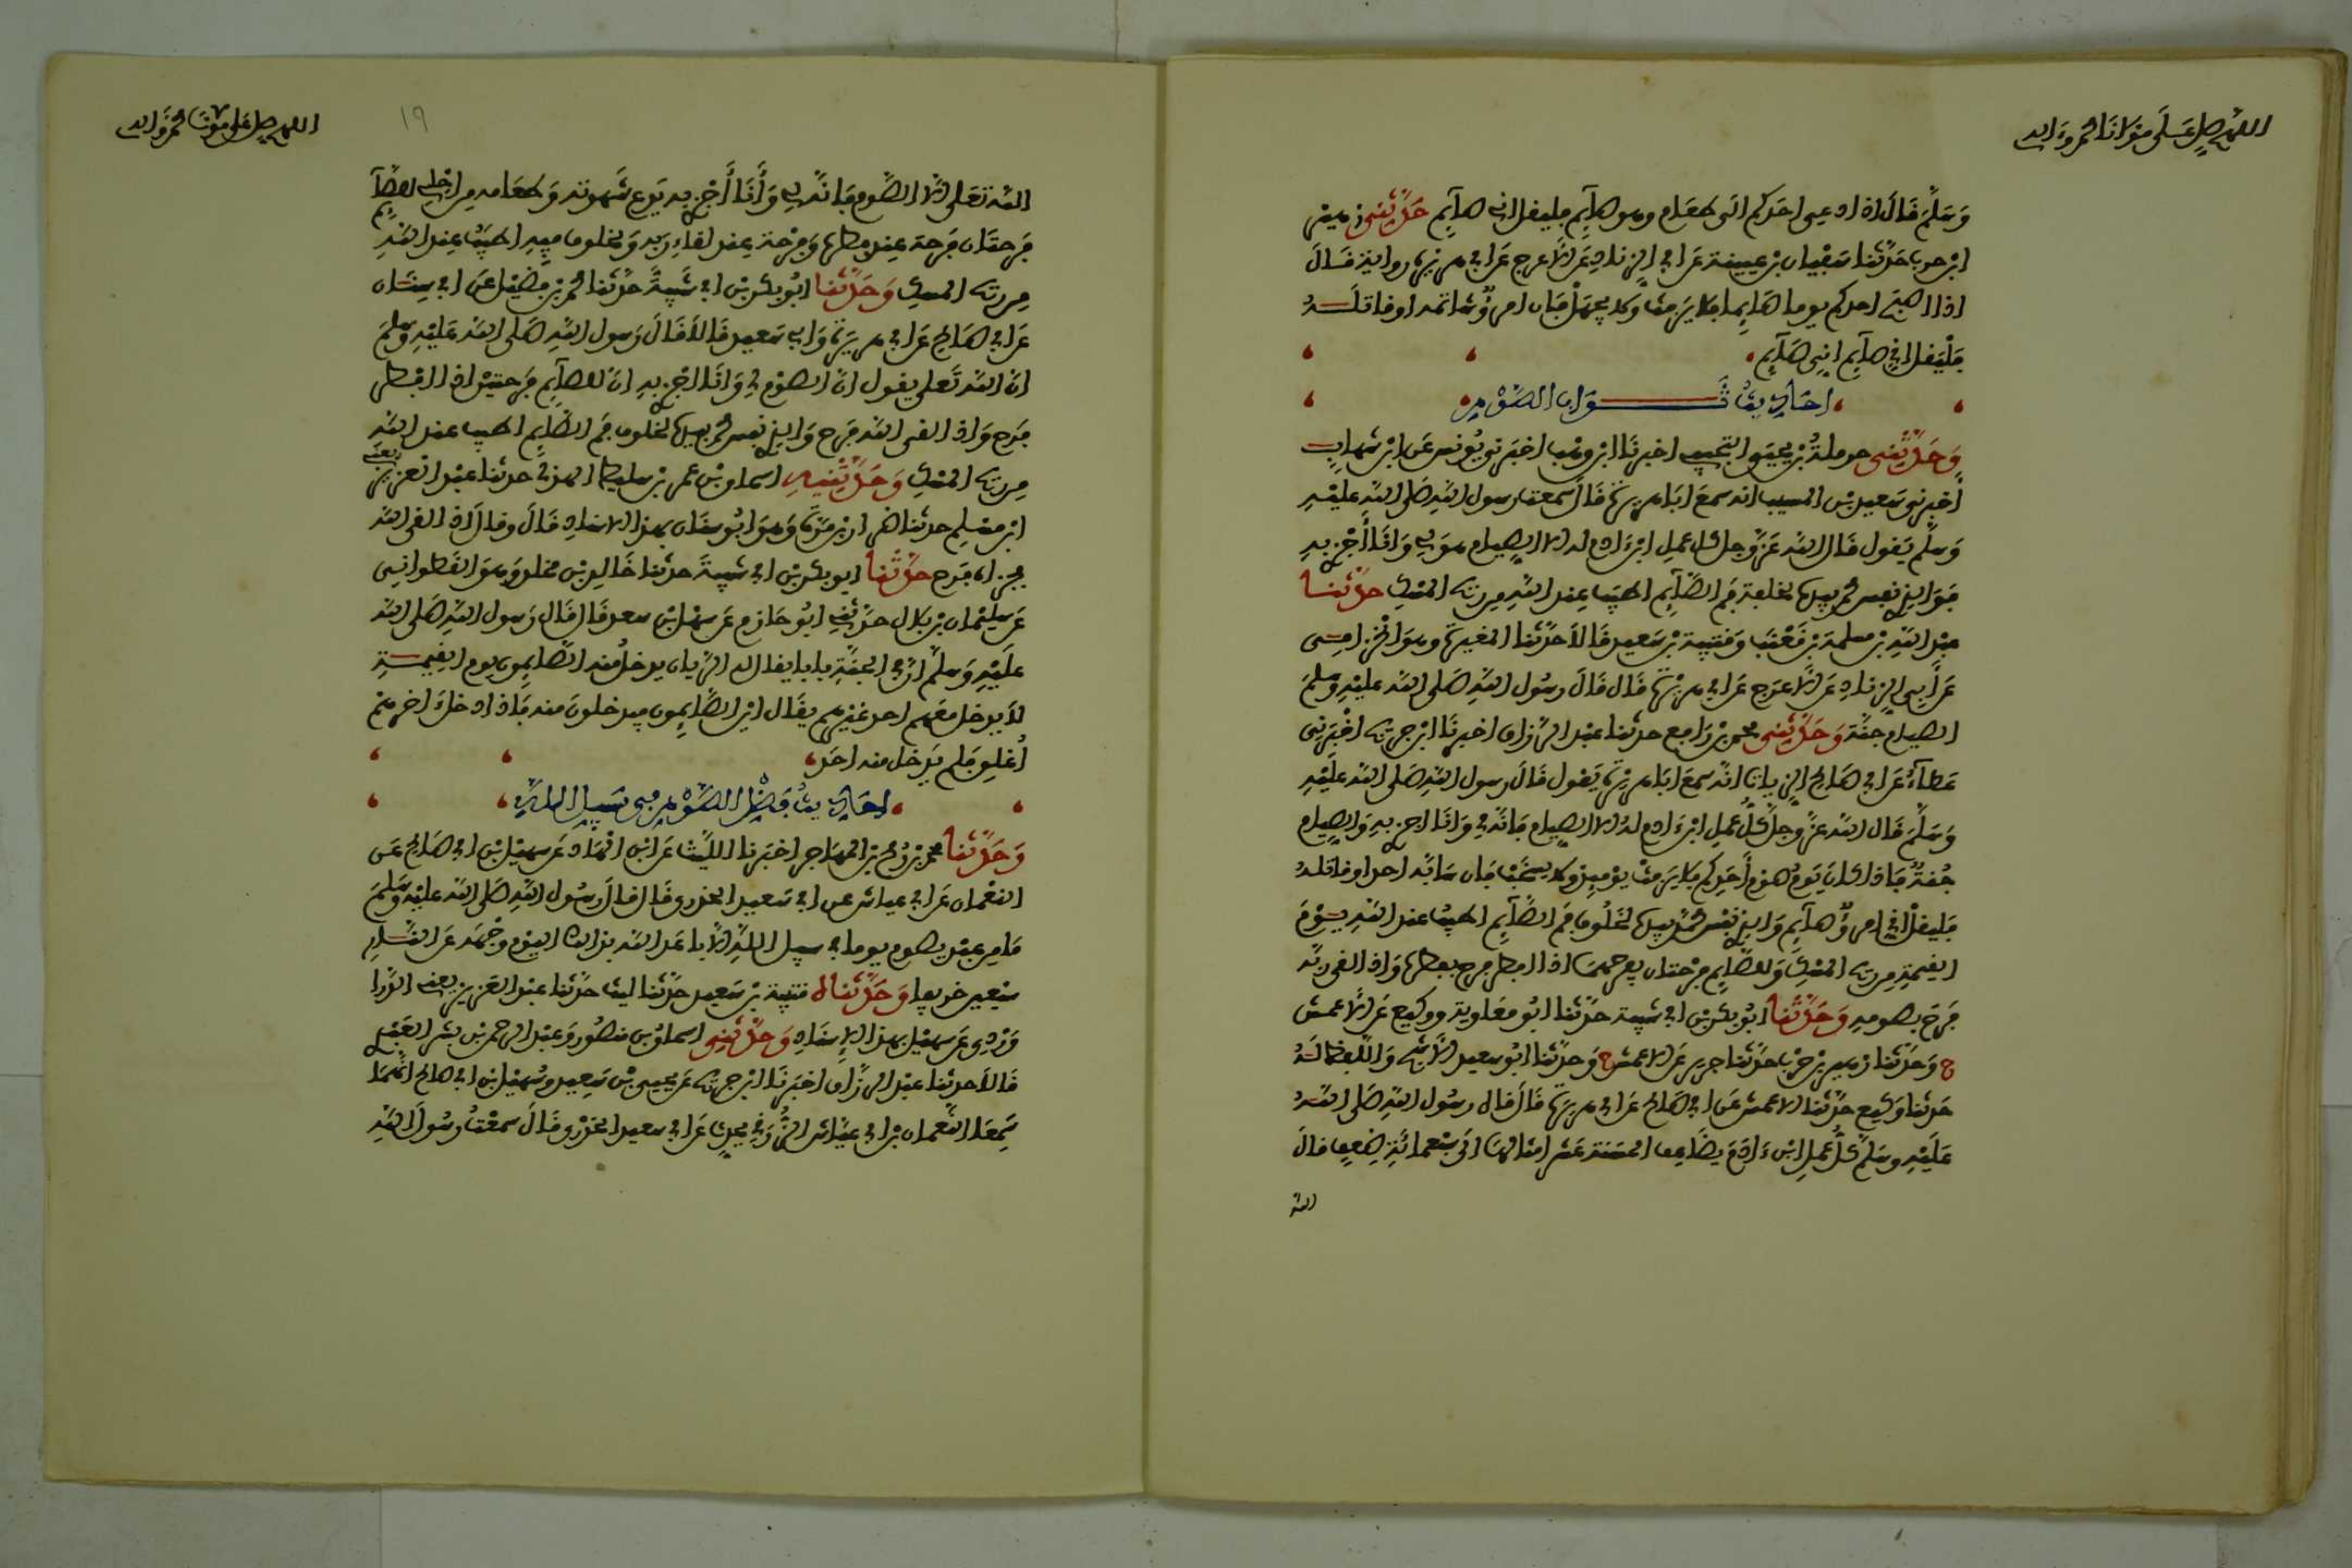 اللهم صل على مولانا محمد وءاله
وسلم قال اذا دعي احدكم الى طعام وهو صآيم فليقل اني صآيم حدثني زهير
ابن حرب حدثنا سفيان بن عيينة عن ابي الزناد عن الاعرج عن ابي هريرة رواية قال
اذا اصبح احدكم يوما صايما فلا يرفث ولا يجهل فان امرؤ شاتمه او قاتله
فليقل اني صآيم اني صآيم
احاديث ثواب الصوم
وحدثني حرملة بن يحيى التجيبي اخبرنا ابن وهب اخبرني يونس عن ابن شهاب
أخبرني سعيد بن المسيب انه سمع ابا هريرة قال سمعت رسول الله صلى الله عليه
وسلم يقول قال الله عز وجل كل عمل ابن ءادم له الا الصيام هو لي وانا أجزي به
فوالذي نفس محمد بيده لخلفة فم الصآيم اطيب عند الله من ريح المسك حدثنا
عبد الله بن مسلمة بن قعنب وقتيبة بن سعيد قالا حدثنا المغيرة وهو الحزامي
عن أبي الزناد عن الاعرج عن ابي هريرة قال قال رسول الله صلى الله عليه وسلم
الصيام جنة وحدثني محمد بن رافع حدثنا عبد الرزاق اخبرنا ابن جريج اخبرني
عطآء عن ابي صالح الزيات انه سمع ابا هريرة يقول قال رسول الله صلى الله عليه
وسلم قال الله عز وجل كل عمل ابن ءادم له الا الصيام فانه لي وانا اجزي به والصيام
جنة فاذا كان يوم صوم أحدكم فلا يرفث يومئذ ولا يسخب فان سابه احد او قاتله
فليقل اني امرؤ صآيم والذي نفس محمد بيده لخلوف فم الصآيم اطيب عند الله يوم
القيمة من ريح المسك وللصآيم فرحتان يفرحهما اذا افطر فرح بفطره واذا لقي ربه
فرح بصومه وحدثنا ابو بكر بن ابي شيبة حدثنا ابو معاوية ووكيع عن الاعمش
ح وحدثنا زهير بن حرب حدثنا جرير عن الاعمش ح وحدثنا ابو سعيد الاشج واللفظ له
حدثنا وكيع حدثنا الاعمش عن ابي صالح عن ابي هريرة قال قال رسول الله صلى الله
عليه وسلم كل عمل ابن ءادم يضاعف الحسنة عشر امثالها الى سبعمائة ضعف قال
الله
اللهم صل على مولانا محمد وءاله
١٩
الله تعلى الا الصوم فانه لي وأنا أجزي به يدع شهوته وطعامه من اجلي للصآيم
فرحتان فرحة عند فطره وفرحة عند لقاء ربه ولخلوف فيه اطيب عند الله
من ريح المسك وحدثنا ابو بكر بن ابي شيبة حدثنا محمد بن فضيل عن ابي سنان
عن ابي صالح عن ابي هريرة وابي سعيد قالا قال رسول الله صلى الله عليه وسلم
ان الله تعلى يقول ان الصوم لي وانا اجزي به ان للصآيم فرحتين اذا افطر
فرح واذا لقي الله فرح والذي نفس محمد بيده لخلوف فم الصآيم اطيب عند الله
من ريح المسك وحدثنيه اسحاق بن عمر بن سليط الهذلي حدثنا عبد العزيز يعني
ابن مسلم حدثنا ضرار بن مرة وهو ابو سنان بهذا الاسناد قال وقال اذا لقي الله
فجزاه فرح حدثنا ابو بكر بن ابي شيبة حدثنا خالد بن مخلد وهو القطواني
عن سليمان بن بلال حدثني ابو حازم عن سهل بن سعد قال قال رسول الله صلى الله
عليه وسلم ان في الجنة بابا يقال له الريان يدخل منه الصايمون يوم القيمة
لا يدخل معهم احد غيرهم يقال اين الصايمون فيدخلون منه فاذا دخل ءاخرهم
أغلق فلم يدخل منه احد
احاديث فضل الصوم في سبيل الله
وحدثنا محمد بن رمح بن المهاجر اخبرنا الليث عن ابن الهاد عن سهيل بن ابي صالح عن
النعمان عن ابي عياش عن ابي سعيد الخدري قال قال رسول الله صلى الله عليه وسلم
ما من عبد يصوم يوما في سبيل الله الا باعد الله بذلك اليوم وجهه عن النار
سبعين خريفا وحدثناه قتيبة بن سعيد حدثنا ليث حدثنا عبد العزيز يعني الدرا
وردي عن سهيل بهذا الاسناد وحدثني اسحاق بن منصور وعبد الرحمن بن بشر العبدي
قالا حدثنا عبد الرزاق اخبرنا ابن جريج عن يحيى بن سعيد وسهيل بن ابي صالح انهما
سمعا النعمان بن ابي عياش الزرقي يحدث عن ابي سعيد الخدري قال سمعت رسول الله